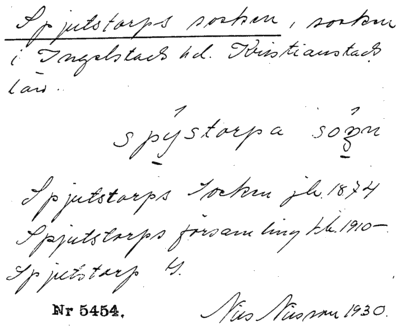 Spjutstorps socken, socken
i Ingelstads hd. Kristianstads
län.
spýstorpa
Spjutstorps Socken jb. 1874
Spjutstorps församling kb. 1910-
Spjutstorp
Nr 5454.
Nils Nilsson 1930.